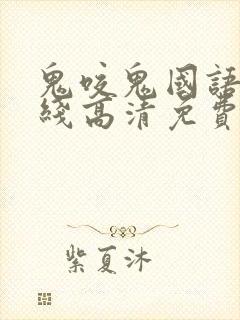 鬼咬鬼國語
綫高清免費
紫夏沐